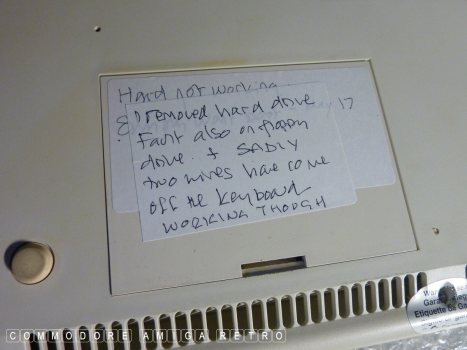 Hard not working
& 17
I removed hard drive
Fault also on floppy
drive. + SADLY
two wires have come
off the keyboard
WORKING THOUGH
Warra
Garan
Etiquette de Ga
COMMODORE AMIGA RETRO